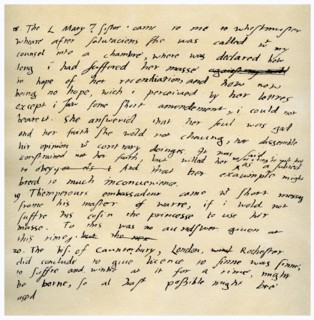 The L. Mary my sister came to me to whestmuster
wheare after salutacions she was called with my
counsel into a chambre, where was declared how
long i had suffered her masse against my wil
in hope of her reconciliation and how now
being no hope, wich i perceived by her lettres
except i saw some short amendement, i could not
beare it. She answerid that her soul was god
and her faith she wold not chaung, nor dissemble
hir opinion with contrary doinges. It was said i
constrained not her faith but willed her
to obey And that her exaumple might
breed to much inconvenience.
Themperours embassadour came with short message
from his master of warre, if i wold not
suffre his cosin the princesse to use her
masse. To this was no aunswer given at
this time. but the
20. The bs. of Caunterbury, London, Rochester
did conclude to give licence to sinne was sinne;
to suffre and winke at it for a time, might
be borne, so al hast possible might bee
used